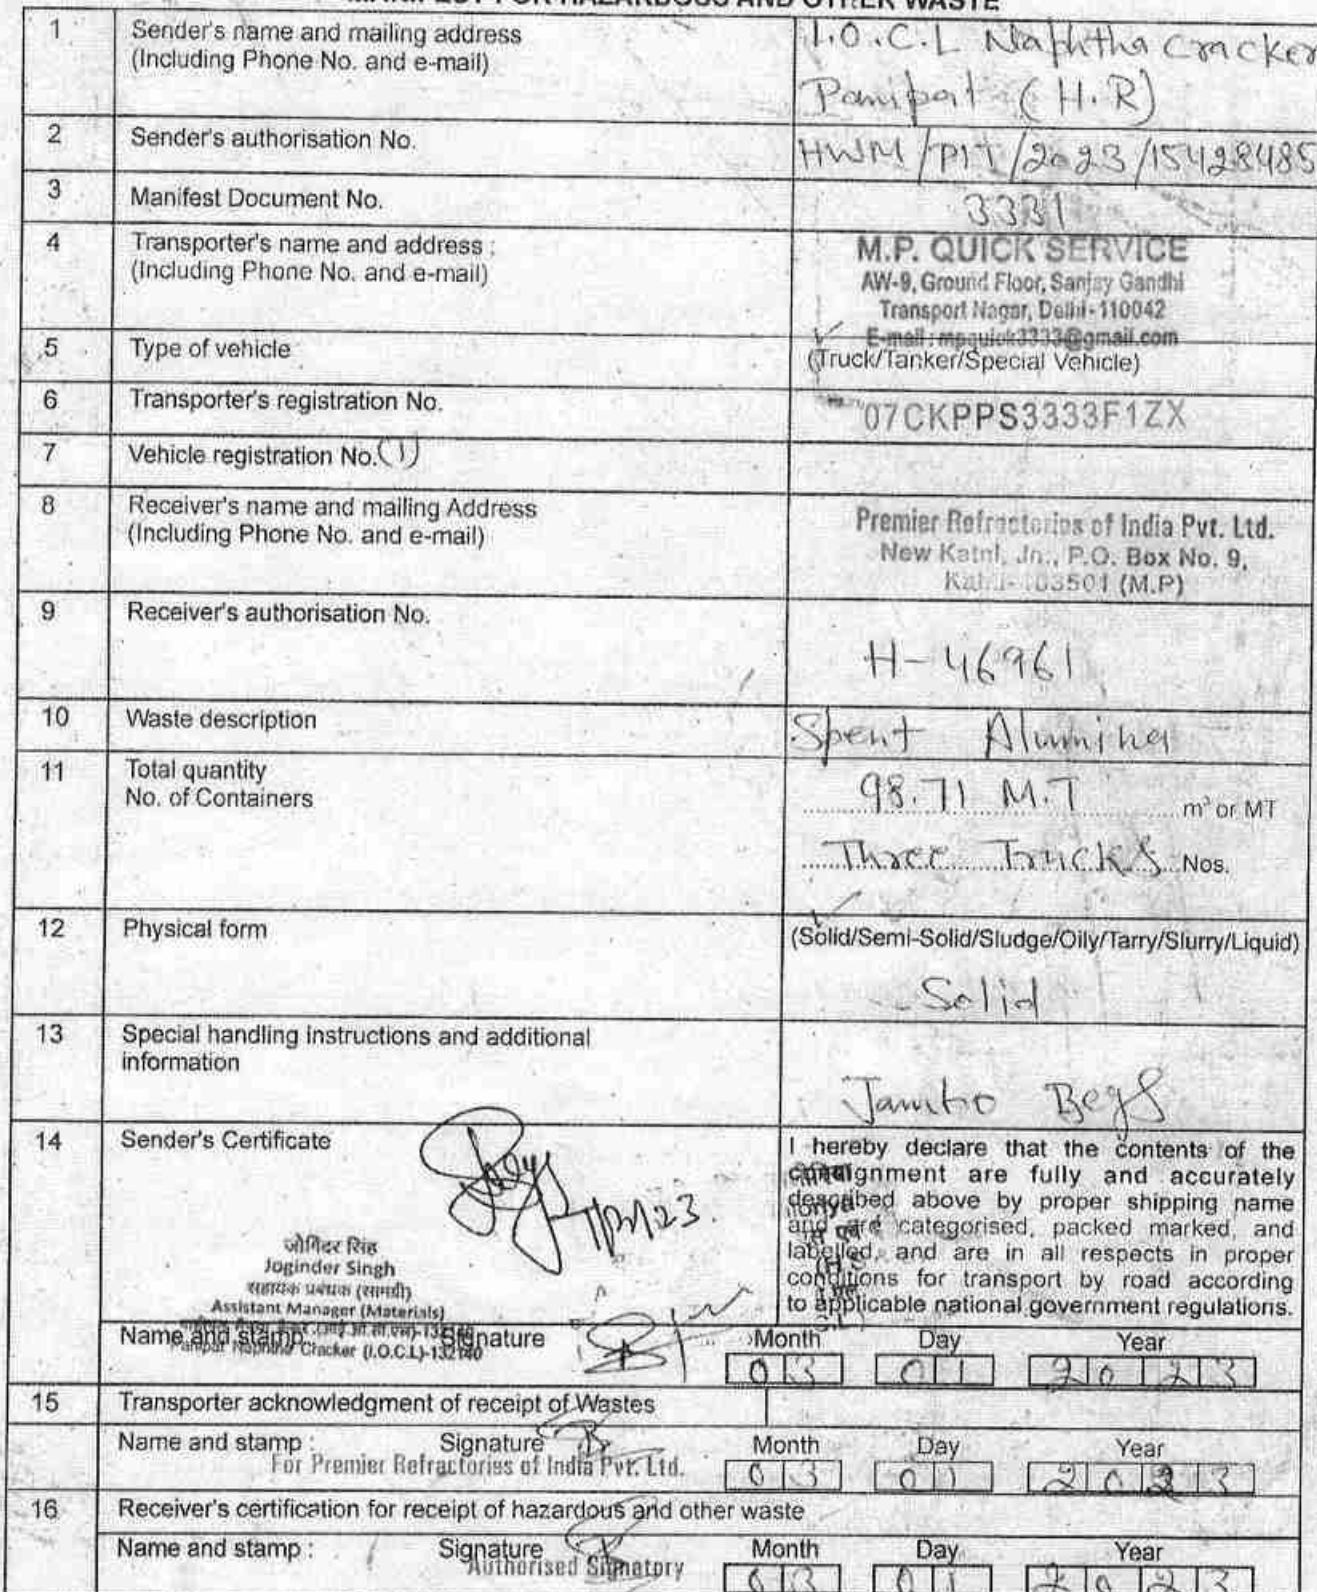 MANIFEST FOR HAZARDOUS AND OTHER WASTE
1 Sender's name and mailing address
(Including Phone No. and e-mail)
I.O.C.L Naphtha Cracker
Panipat (H.R)
2 Sender's authorisation No. HWM/PIT/2023/15428485
3 Manifest Document No. 3331
4 Transporter's name and address :
(Including Phone No. and e-mail)
M.P. QUICK SERVICE
AW-9, Ground Floor, Sanjay Gandhi
Transport Nagar, Delhi-110042
E-mail : mpquick3333@gmail.com
5 Type of vehicle (Truck/Tanker/Special Vehicle)
6 Transporter's registration No. 07CKPPS3333F1ZX
7 Vehicle registration No. (1)
8 Receiver's name and mailing Address
(Including Phone No. and e-mail)
Premier Refractories of India Pvt. Ltd.
New Katni, Jn., P.O. Box No. 9,
Katni- 483501 (M.P)
9 Receiver's authorisation No.
H-46961
10 Waste description Spent Alumina
11 Total quantity
No. of Containers
98.71 M.T m³ or MT
Three Trucks Nos.
12 Physical form (Solid/Semi-Solid/Sludge/Oily/Tarry/Slurry/Liquid)
Solid
13 Special handling instructions and additional
information
Jambo Begs
14 Sender's Certificate
I hereby declare that the contents of the
consignment are fully and accurately
described above by proper shipping name
and are categorised, packed marked, and
labelled, and are in all respects in proper
conditions for transport by road according
to applicable national government regulations.
जोगिंदर सिंह
Joginder Singh
सहायक प्रबंधक (सामग्री)
Assistant Manager (Materials)
Panipat Naphtha Cracker (I.O.C.L)-132140
Name and stamp: Signature Month Day Year
03 01 2023
15 Transporter acknowledgment of receipt of Wastes
Name and stamp : Signature Month Day Year
For Premier Refractories of India Pvt. Ltd.
03 01 2023
16 Receiver's certification for receipt of hazardous and other waste
Name and stamp : Signature Month Day Year
Authorised Signatory
03 01 2023